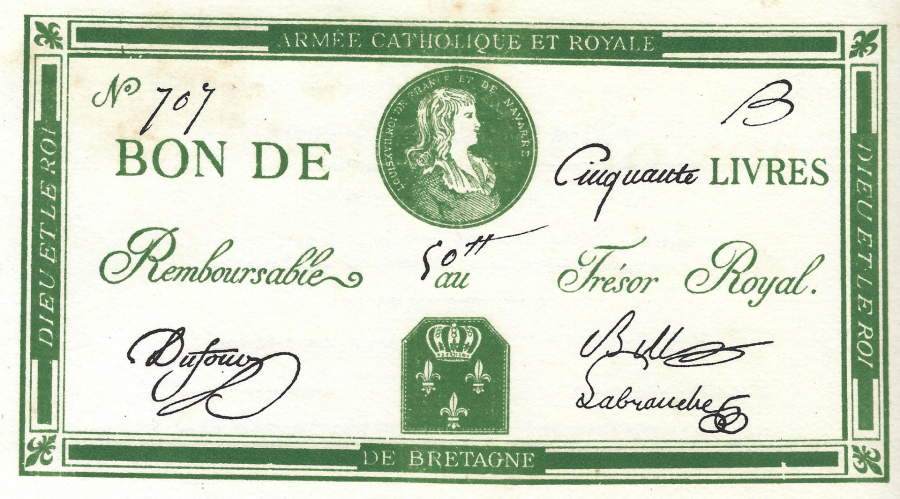 ARMÉE CATHOLIQUE ET ROYALE
DIEU ET LE ROI
N° 707
LOUIS XVII ROI DE FRANCE ET DE NAVARRE
B
BON DE
Cinquante LIVRES
50tt
Remboursable au Trésor Royal.
DIEU ET LE ROI
Dufour
Labranche
DE BRETAGNE